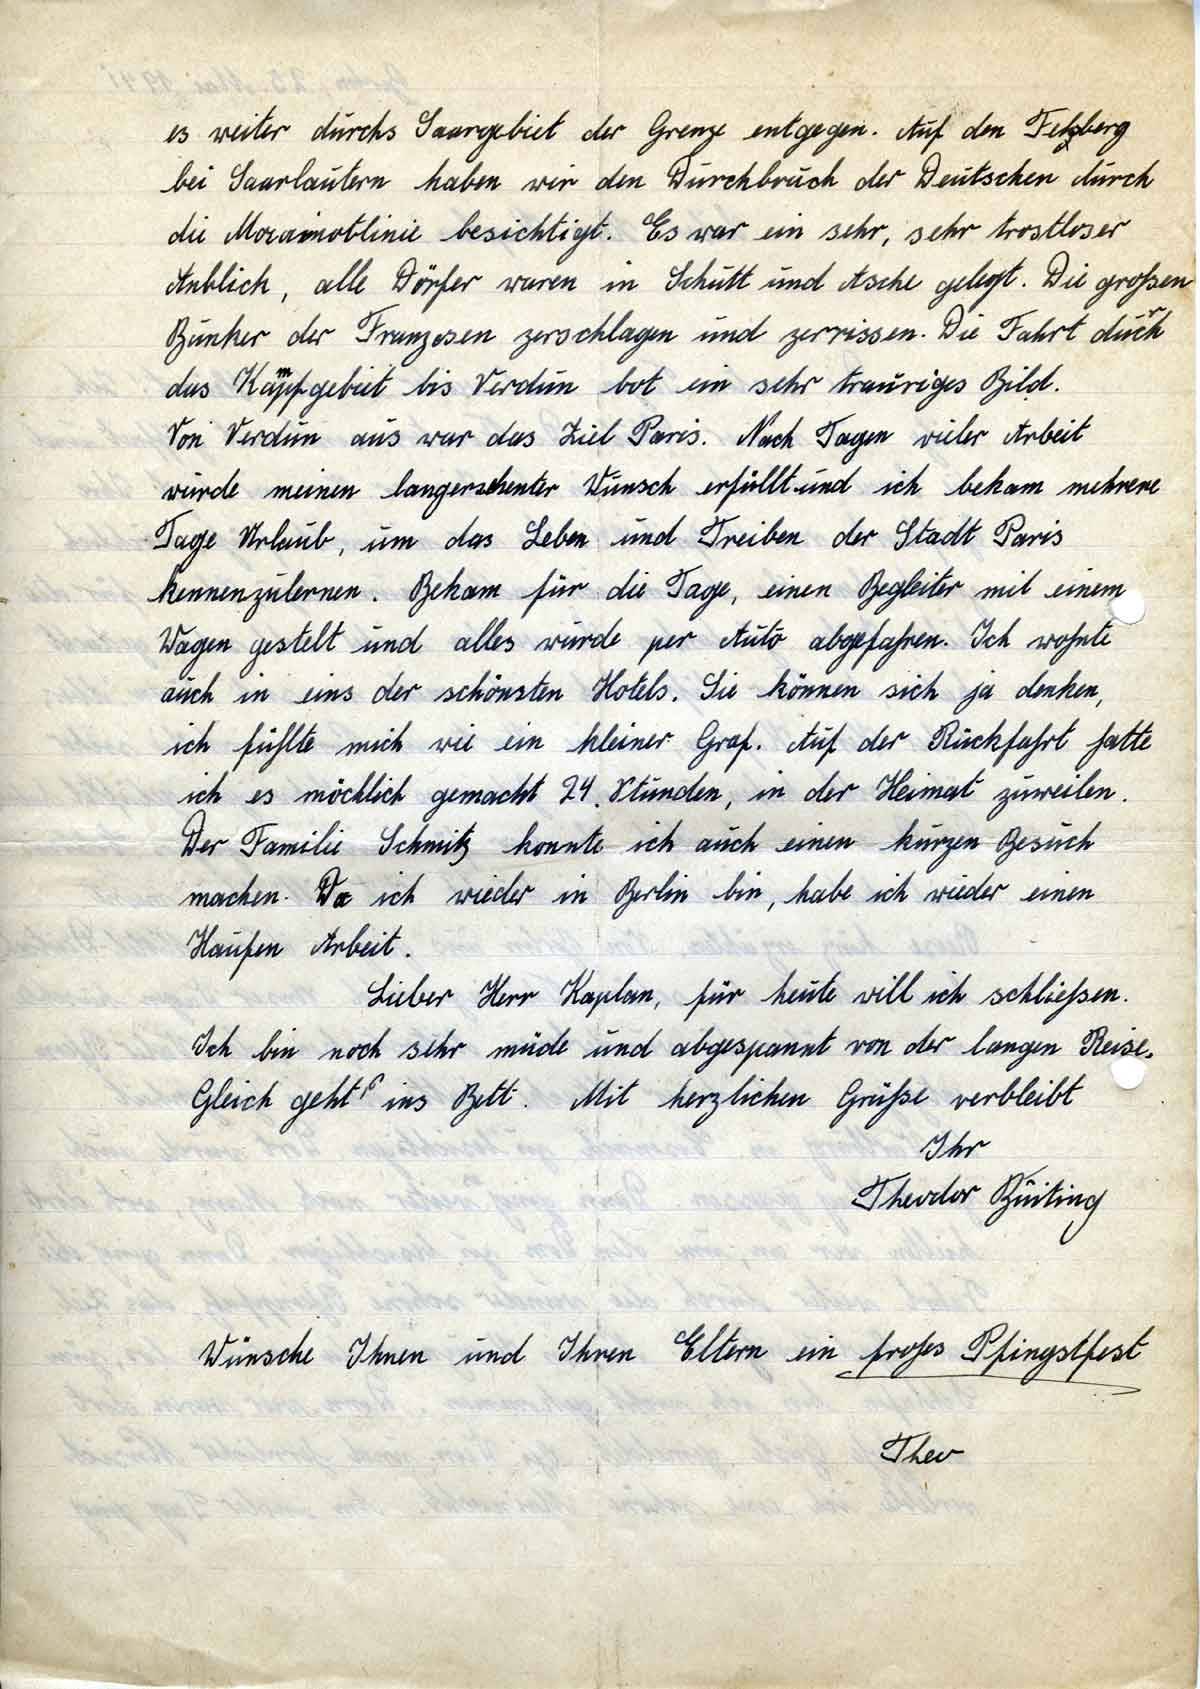 es weiter durchs Saargebiet der Grenze entgegen. Auf den Felzberg
bei Saarlautern haben wir den Durchbruch der Deutschen durch
die besichtigt. Es war ein sehr, sehr trostloser
Anblich, alle Dörfer waren in Schutt und Asche gelegt. Die großen
Bunker der Franzosen zerschlagen und zerrissen. Die Fahrt durch
das Kampfgebiet bis Verdun bot ein sehr trauriges Bild.
Von Verdun aus war das Ziel Paris. Nach Tagen vieler Arbeit
wurde meinen langersehenter Wunsch erfüllt und ich bekam mehrere
Tage Urlaub, um das Leben und Treiben der Stadt Paris
kennenzulernen. Bekam für die Tage, einen Begleiter mit einem
Wagen gestelt und alles wurde per Auto abgefahren. Ich wohnte
auch in eins der schönsten Hotels. Sie können sich ja denken,
ich fühlte mich wie ein kleiner Graf. Auf der Rückfahrt hatte
ich es möchlich gemacht 24. Stunden, in der Heimat zuweilen.
Der Familie Schmitz konnte ich auch einen kurzen Besuch
machen. Da ich wieder in Berlin bin, habe ich wieder einen
Haufen Arbeit.
Lieber Herr Kaplan, für heute will ich schließen.
Ich bin noch sehr müde und abgespannt von der langen Reise.
Gleich geht's ins Bett. Mit herzlichen Grüße verbleibt
Ihr
Theodor Büiting
Wünsche Ihnen und Ihren Eltern ein frohes Pfingstfest
Theo